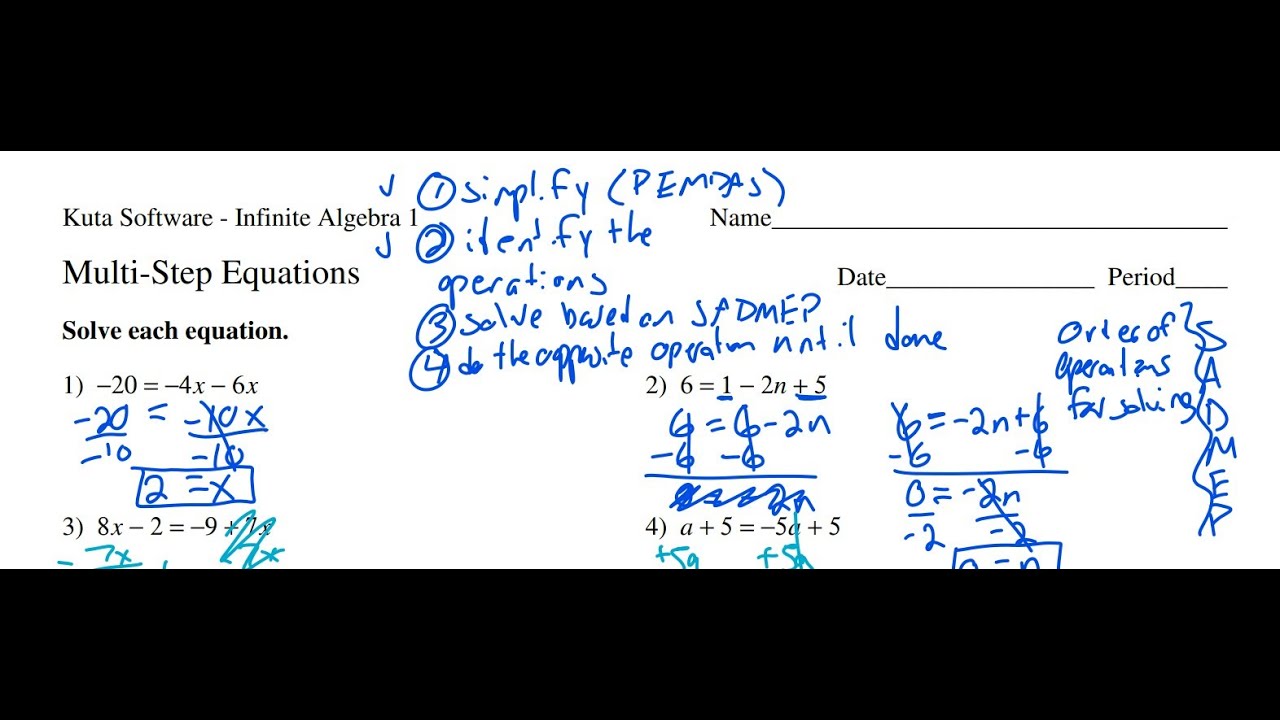 ① simplify (PEMDAS)
Kuta Software - Infinite Algebra 1
Name
② identify the
operations
Multi-Step Equations
Date Period
③ solve based on SADMEP
④ do the opposite operation until done
Solve each equation.
Order of
operations
for solving
S
A
D
M
E
P
1) −20 = −4x − 6x
-20 = -10x
-10 -10
2 = x
2) 6 = 1 − 2n + 5
6 = 6 - 2n
-6 -6
6 = -2n + 6
-6 -6
0 = -2n
-2 -2
0 = n
3) 8x − 2 = −9 + 7x
- 7x
4) a + 5 = −5a + 5
+5a +5a